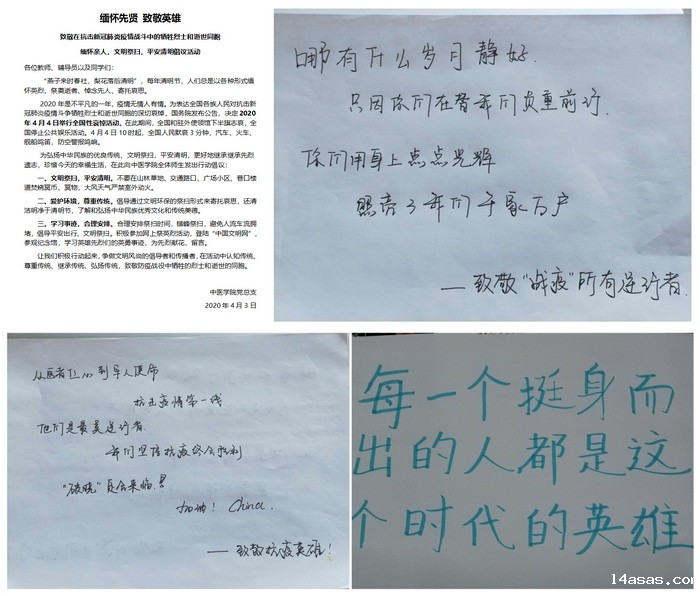 缅怀先贤 致敬英雄
致敬在抗击新冠肺炎疫情战斗中的牺牲烈士和逝世同胞
缅怀亲人，文明祭扫，平安清明倡议活动
各位教师、辅导员以及同学们：
“燕子来时春社，梨花落后清明”，每年清明节，人们总是以各种形式缅
怀英烈、祭奠逝者、悼念先人、寄托哀思。
2020 年是不平凡的一年，疫情无情人有情。为表达全国各族人民对抗击新
冠肺炎疫情斗争牺牲烈士和逝世同胞的深切哀悼，国务院发布公告，决定 2020
年 4 月 4 日举行全国性哀悼活动。在此期间，全国和驻外使领馆下半旗志哀，全
国停止公共娱乐活动。4 月 4 日 10 时起，全国人民默哀 3 分钟，汽车、火车、
舰船鸣笛，防空警报鸣响。
为弘扬中华民族的优良传统，文明祭扫，平安清明，更好地继承继承先烈
遗志，珍惜今天的幸福生活，在此向中医学院全体师生发出行动倡议：
一、文明祭扫，平安清明。不要在山林草地、交通路口、广场小区、巷口楼
道焚烧冥币、冥物，大风天气严禁室外动火。
二、爱护环境，尊重传统。倡导通过文明环保的祭扫形式来寄托哀思，还清
洁明净于清明节，了解和弘扬中华民族优秀文化和传统美德。
三、学习事迹，合理安排。合理安排祭扫时间，错峰祭扫，避免人流车流拥
堵，倡导平安出行、文明祭扫。积极参加网上祭英烈活动，登陆“中国文明网”，
参观纪念馆，学习英雄先烈们的英勇事迹，为先烈献花、留言。
让我们积极行动起来，争做文明风尚的倡导者和传播者，在活动中认知传统、
尊重传统、继承传统、弘扬传统，致敬防疫战役中牺牲的烈士和逝世的同胞。
中医学院党总支
2020 年 4 月 3 日
哪有什么岁月静好
只因你们在替我们负重前行.
你们用身上点点光辉
照亮了我们千家万户
——致敬“战疫”所有逆行者.
从医者仁心到军人使命
抗击疫情第一线
他们是最美逆行者.
我们坚信抗疫终会胜利
“破晓”总会来临!
加油! China.
——致敬抗疫英雄!
每一个挺身而
出的人都是这
个时代的英雄
14asas.com